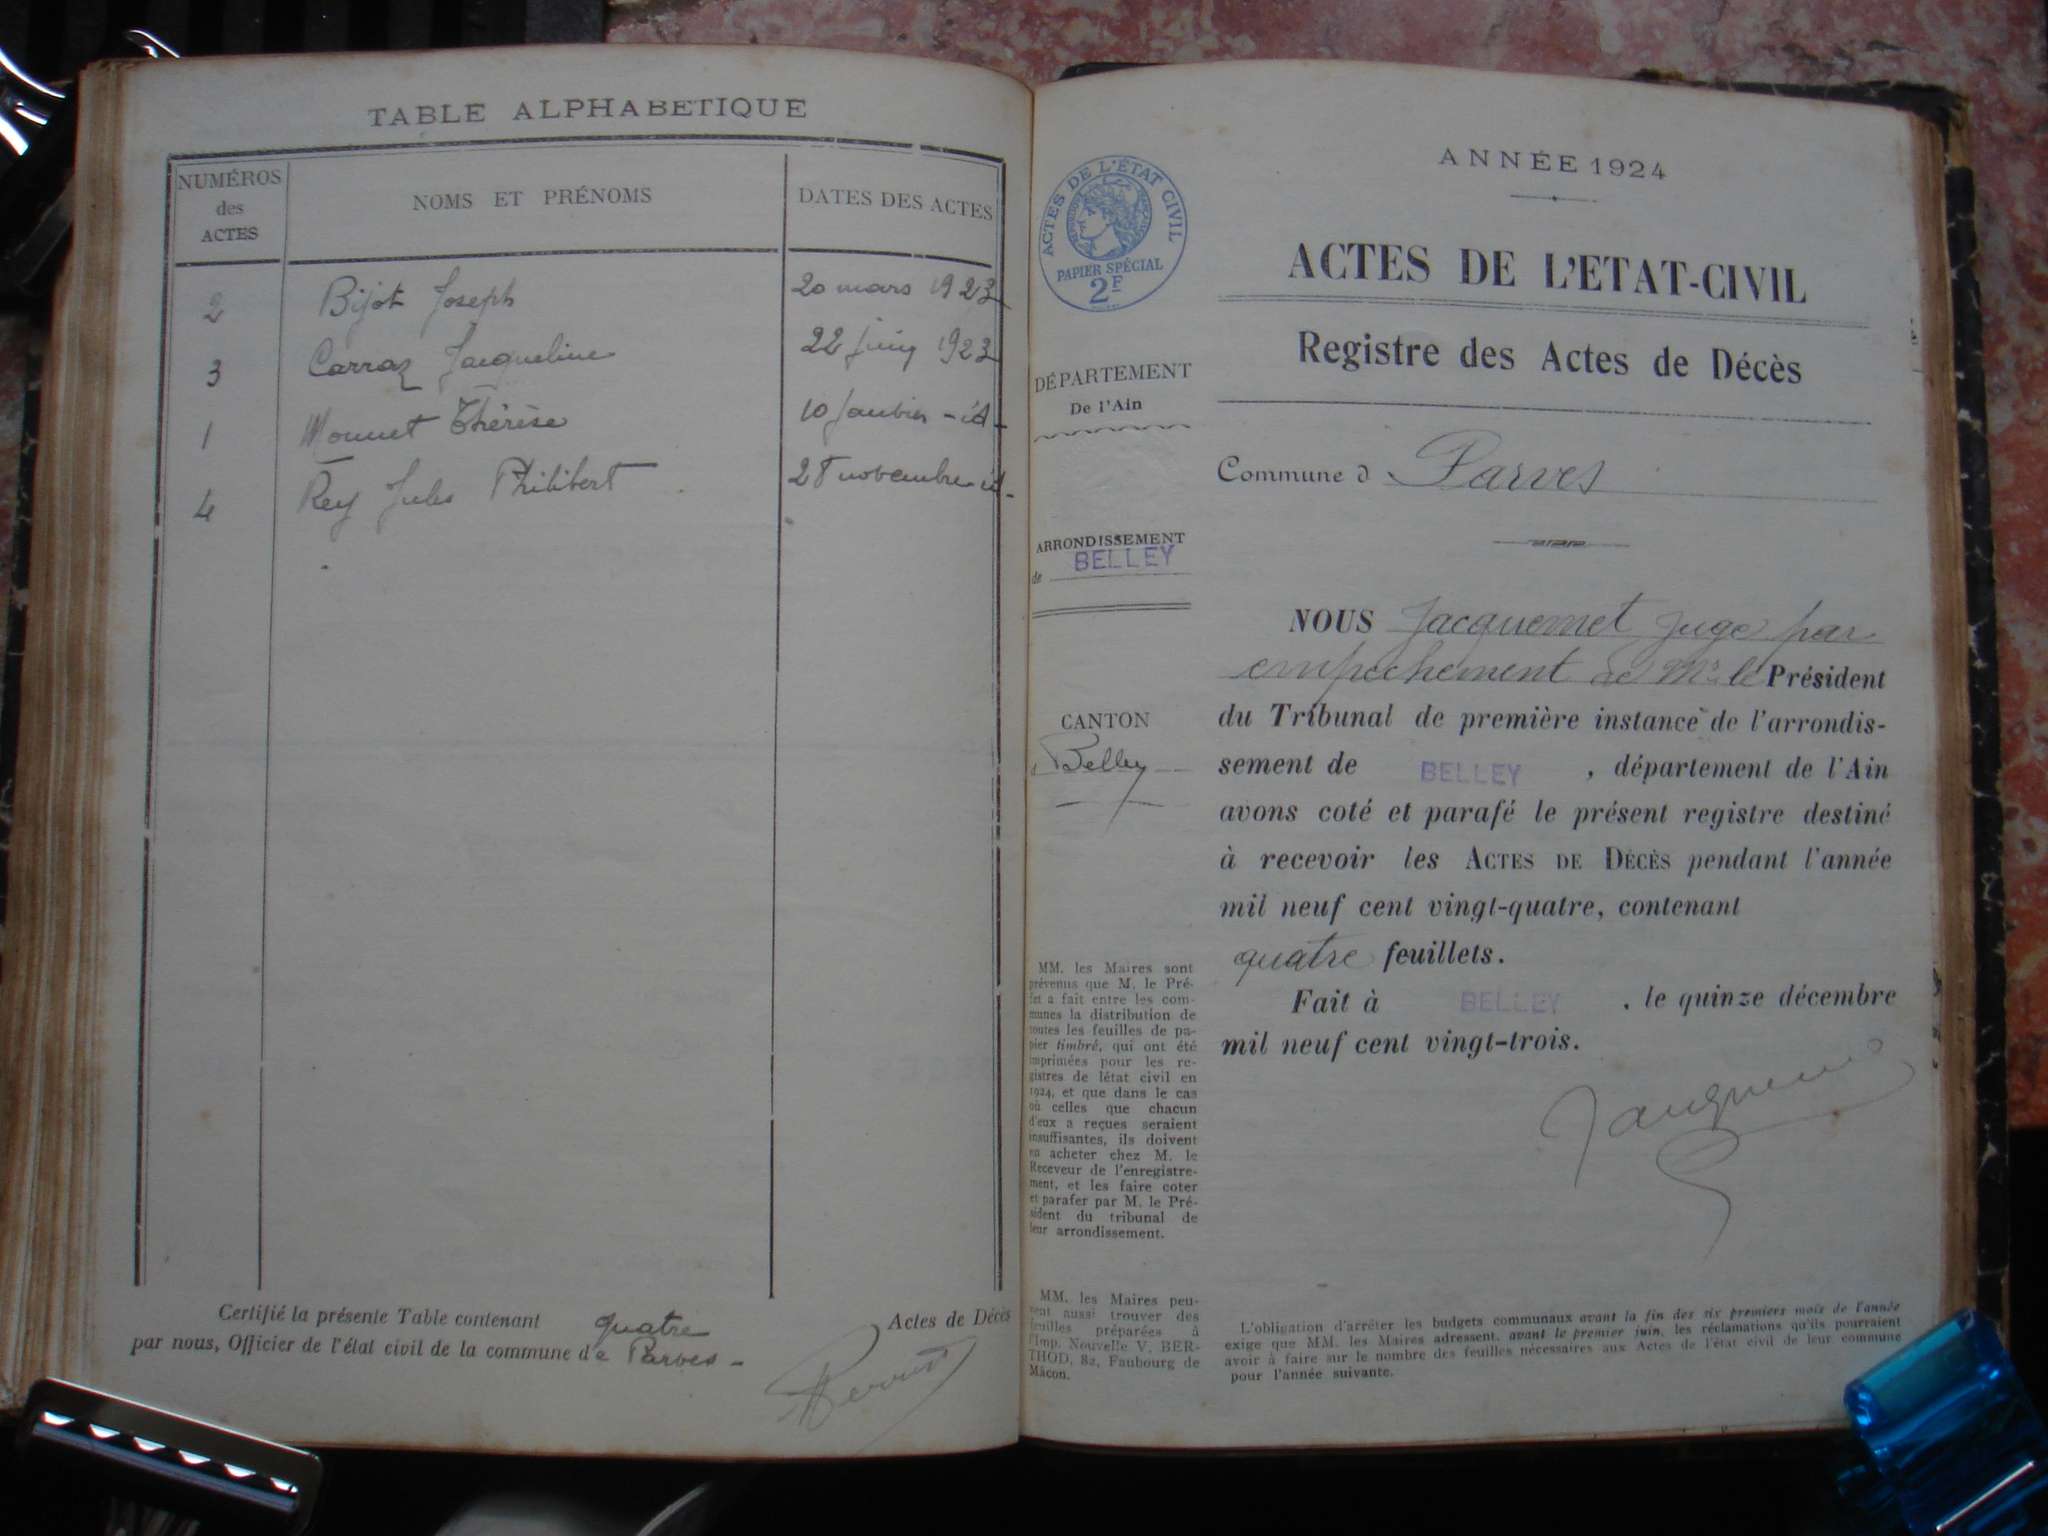 TABLE ALPHABETIQUE
NUMÉROS
des
ACTES
NOMS ET PRÉNOMS
DATES DES ACTES
2 Bijot Joseph 20 mars 1923
3 Carraz Jacqueline 22 juin 1923
1 Monnet Thérèse 10 Janvier - id -
4 Rey Jules Philibert 28 novembre id -
Certifié la présente Table contenant quatre Actes de Décès
par nous, Officier de l'état civil de la commune de Parves -
ACTES DE L'ÉTAT CIVIL
PAPIER SPÉCIAL
2F
DÉPARTEMENT
De l'Ain
ARRONDISSEMENT
de BELLEY
CANTON
d Belley
MM. les Maires sont
prévenus que M. le Pré-
fet a fait entre les com-
munes la distribution de
toutes les feuilles de pa-
pier timbré, qui ont été
imprimées pour les re-
gistres de létat civil en
1924, et que dans le cas
où celles que chacun
d'eux a reçues seraient
insuffisantes, ils doivent
en acheter chez M. le
Receveur de l'enregistre-
ment, et les faire coter
et parafer par M. le Pré-
sident du tribunal de
leur arrondissement.
MM. les Maires peu-
vent aussi trouver des
feuilles préparées à
l'Imp. Nouvelle V. BER-
THOD, 82, Faubourg de
Mâcon.
ANNÉE 1924
ACTES DE L'ETAT-CIVIL
Registre des Actes de Décès
Commune d Parves
NOUS Jacquemet Juge par
empechement de Mr. le Président
du Tribunal de première instance de l'arrondis-
sement de BELLEY, département de l'Ain
avons coté et parafé le présent registre destiné
à recevoir les ACTES DE DÉCÈS pendant l'année
mil neuf cent vingt-quatre, contenant
quatre feuillets.
Fait à BELLEY, le quinze décembre
mil neuf cent vingt-trois.
L'obligation d'arrêter les budgets communaux avant la fin des six premiers mois de l'année
exige que MM. les Maires adressent, avant le premier juin, les réclamations qu'ils pourraient
avoir à faire sur le nombre des feuilles nécessaires aux Actes de l'état civil de leur commune
pour l'année suivante.